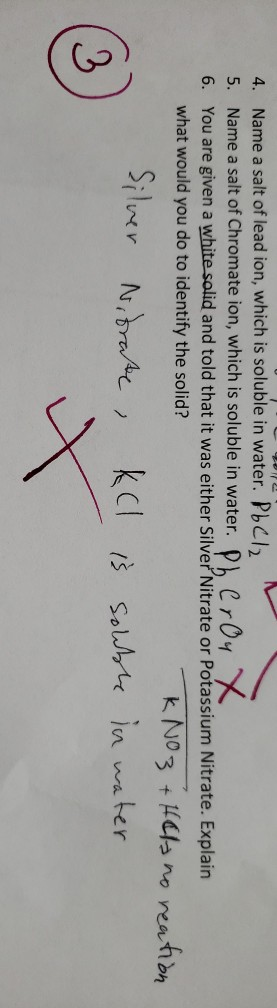 4. Name a salt of lead ion, which is soluble in water. PbCl₂
5. Name a salt of Chromate ion, which is soluble in water. PbCrO4
6. You are given a white solid and told that it was either Silver Nitrate or Potassium Nitrate. Explain
what would you do to identify the solid?
KNO3 + HCl → no reaction
Silver Nitrate, KCl is soluble in water
3